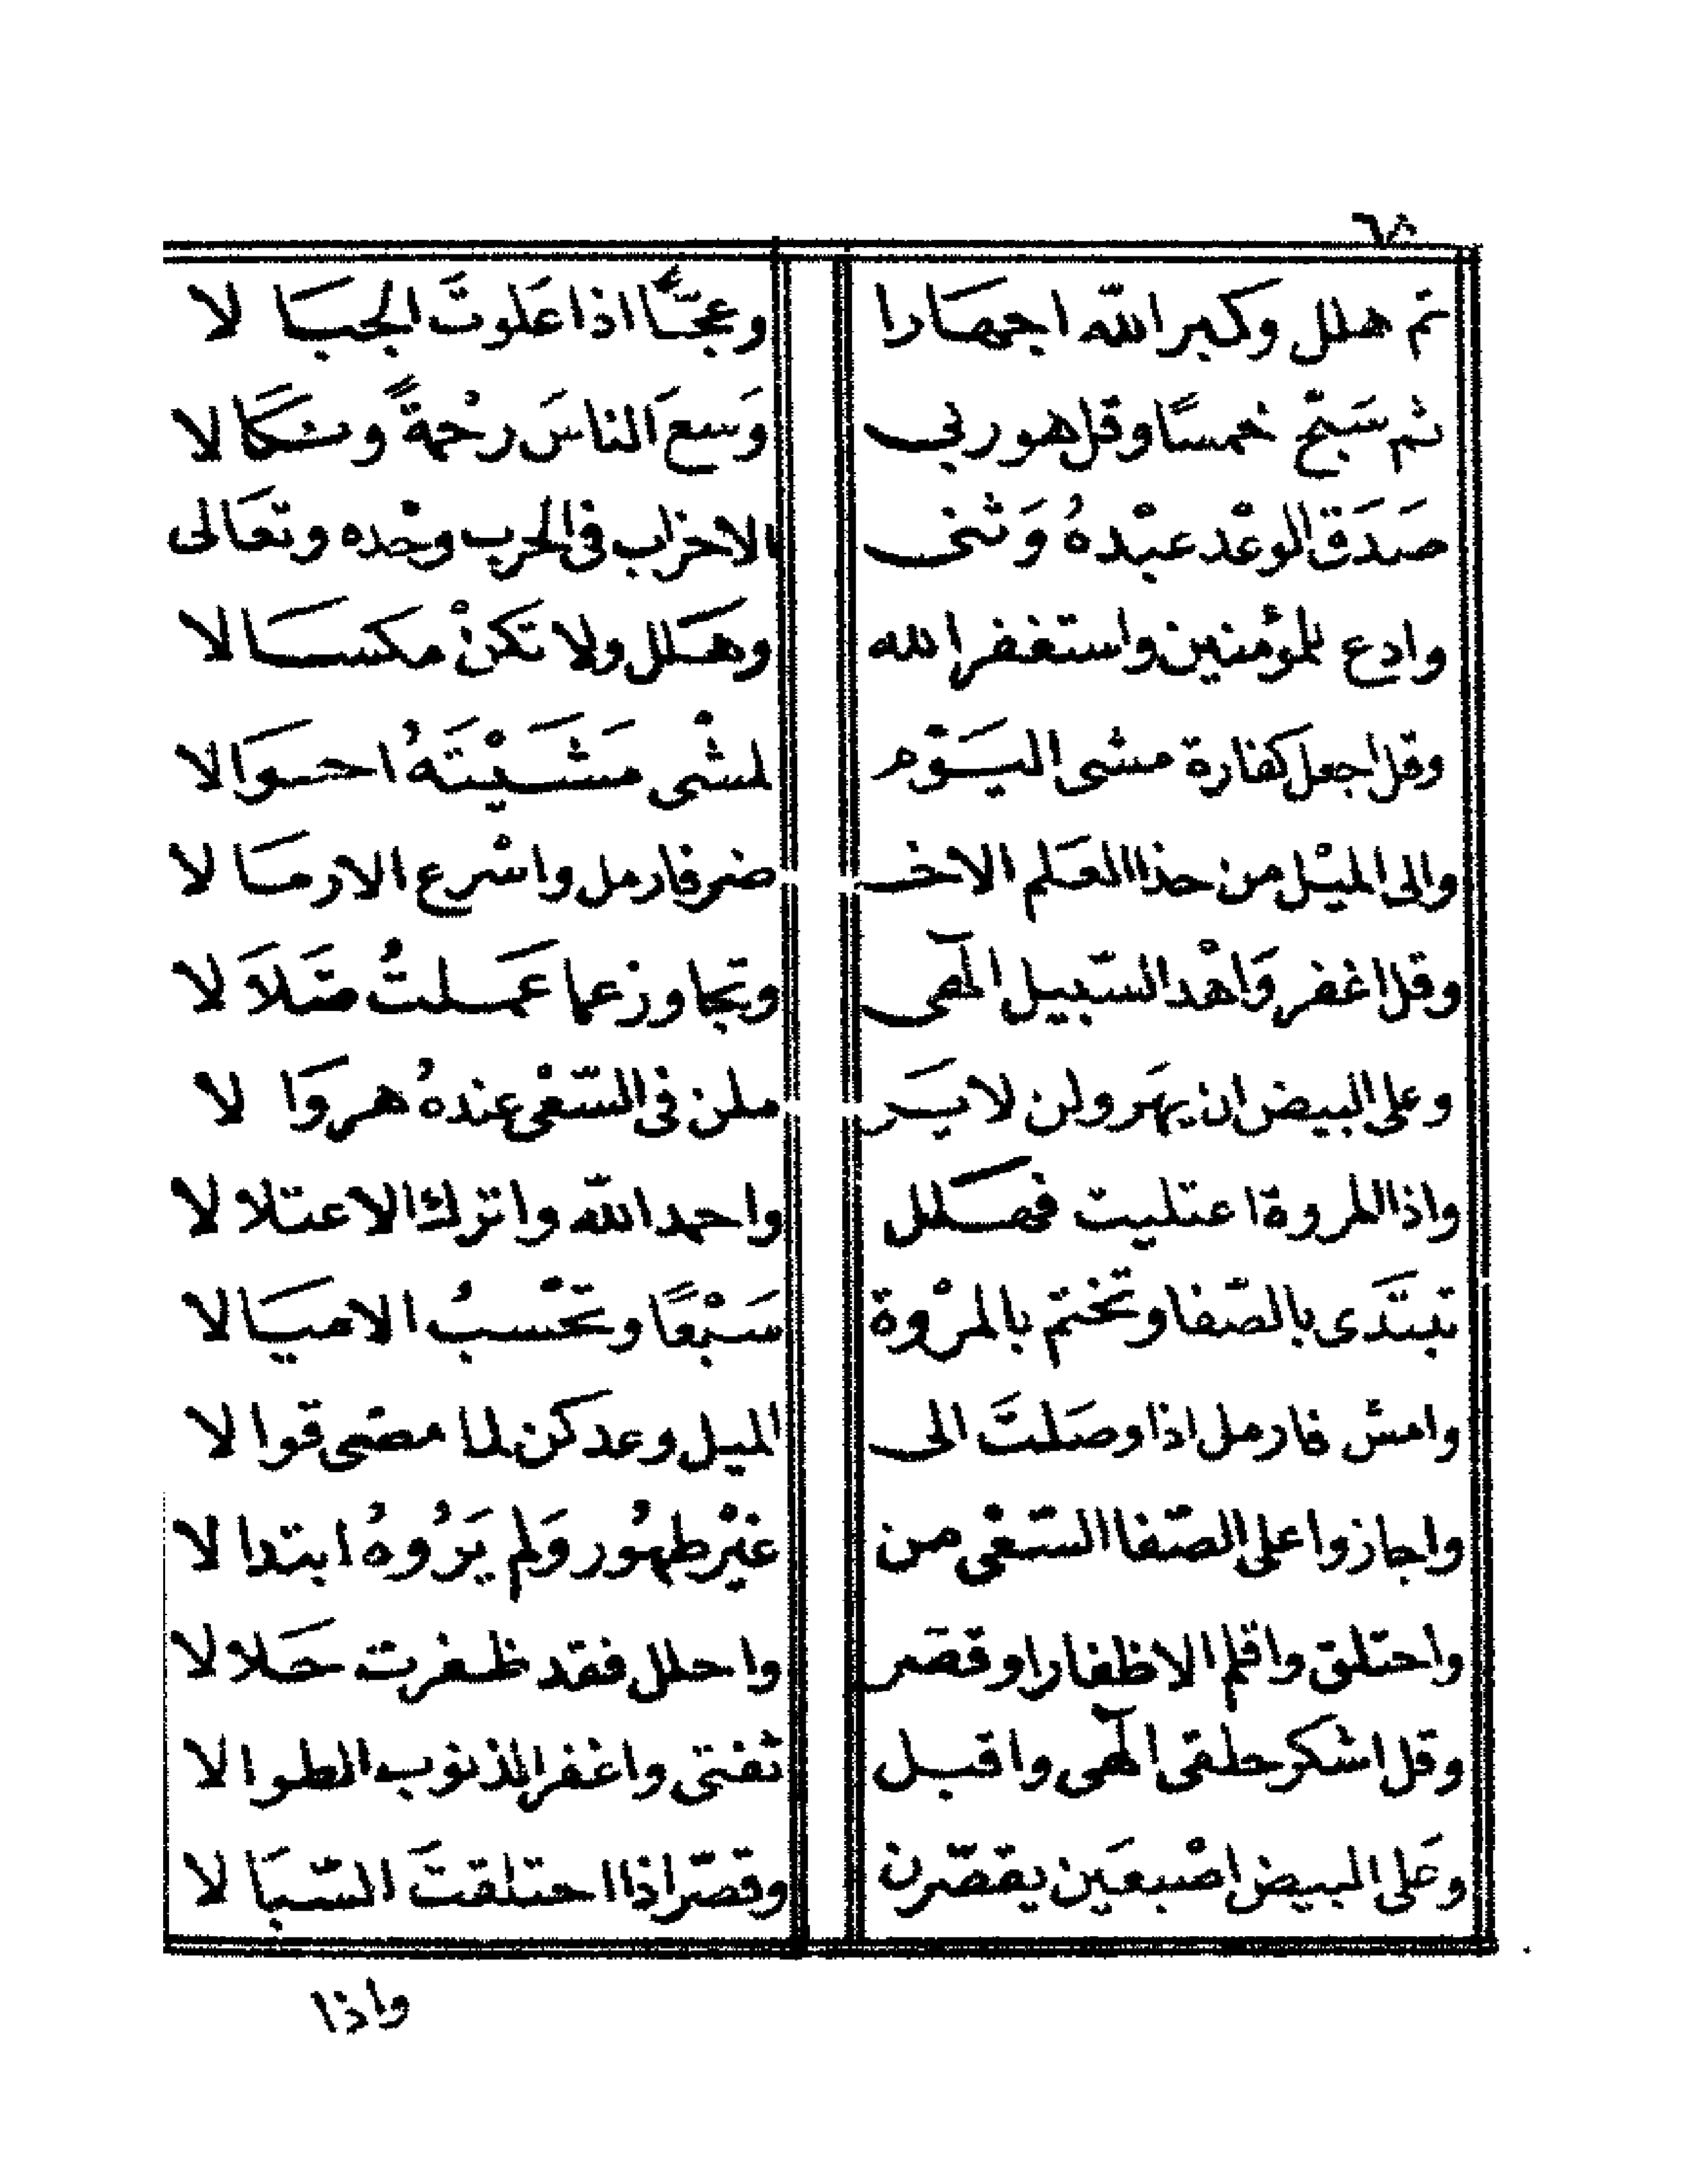 ٦٨
ثم هلل وكبر الله اجهارا وعجّاً اذا علوتَ الجبَا لا
ثم سَبّح خمسًا وقل هو ربي وَسعَ الناسَ رحْمةً ونكَالا
صَدَق الوعْد عبْدهُ وَ نحى الاحزاب في الحرب وحْده وتعَالى
وادع للمؤمنين واستغفر الله وهَلل ولا تكنْ مكسَالا
وقل اجعل كفارة مشى اليَوْم لمشْى مَشَيْتَهُ احوَالا
والى الميْل من حذا العَلم الاخـ ضر فارمل واسْرع الارمَا لا
وقل اغفر وَاهْد السّبيل الٓهى وتجاوز عما عَملتُ ضَلاَ لا
وعلى البيض ان يهَرولن لا يَر ملن فى السّعْى عندهُ هروَا لا
واذا المروة اعتليت فهَلل واحمد الله واترك الاعتلالا
تبتَدى بالصّفا وتختم بالمرْوة سَبْعًا وتحْسبُ الاميَالا
وامش فارمل اذا وصَلتَ الى الميل وعد كن لما مضى قوالا
واجازوا على الصّفا السّعْى من غيْر طهُور وَلم يَرُوهُ ابتدالا
واحتلق واقلم الاظفار او قصّر واحلل فقد ظفرت حَلالا
وقل اشكر حلقى الٓهى واقبل تفتى واغفر الذنوب الطوالا
وعَلى البيض اصْبعَين يقصّرن وقصّر اذا احتلقتَ السّبَالا
واذا